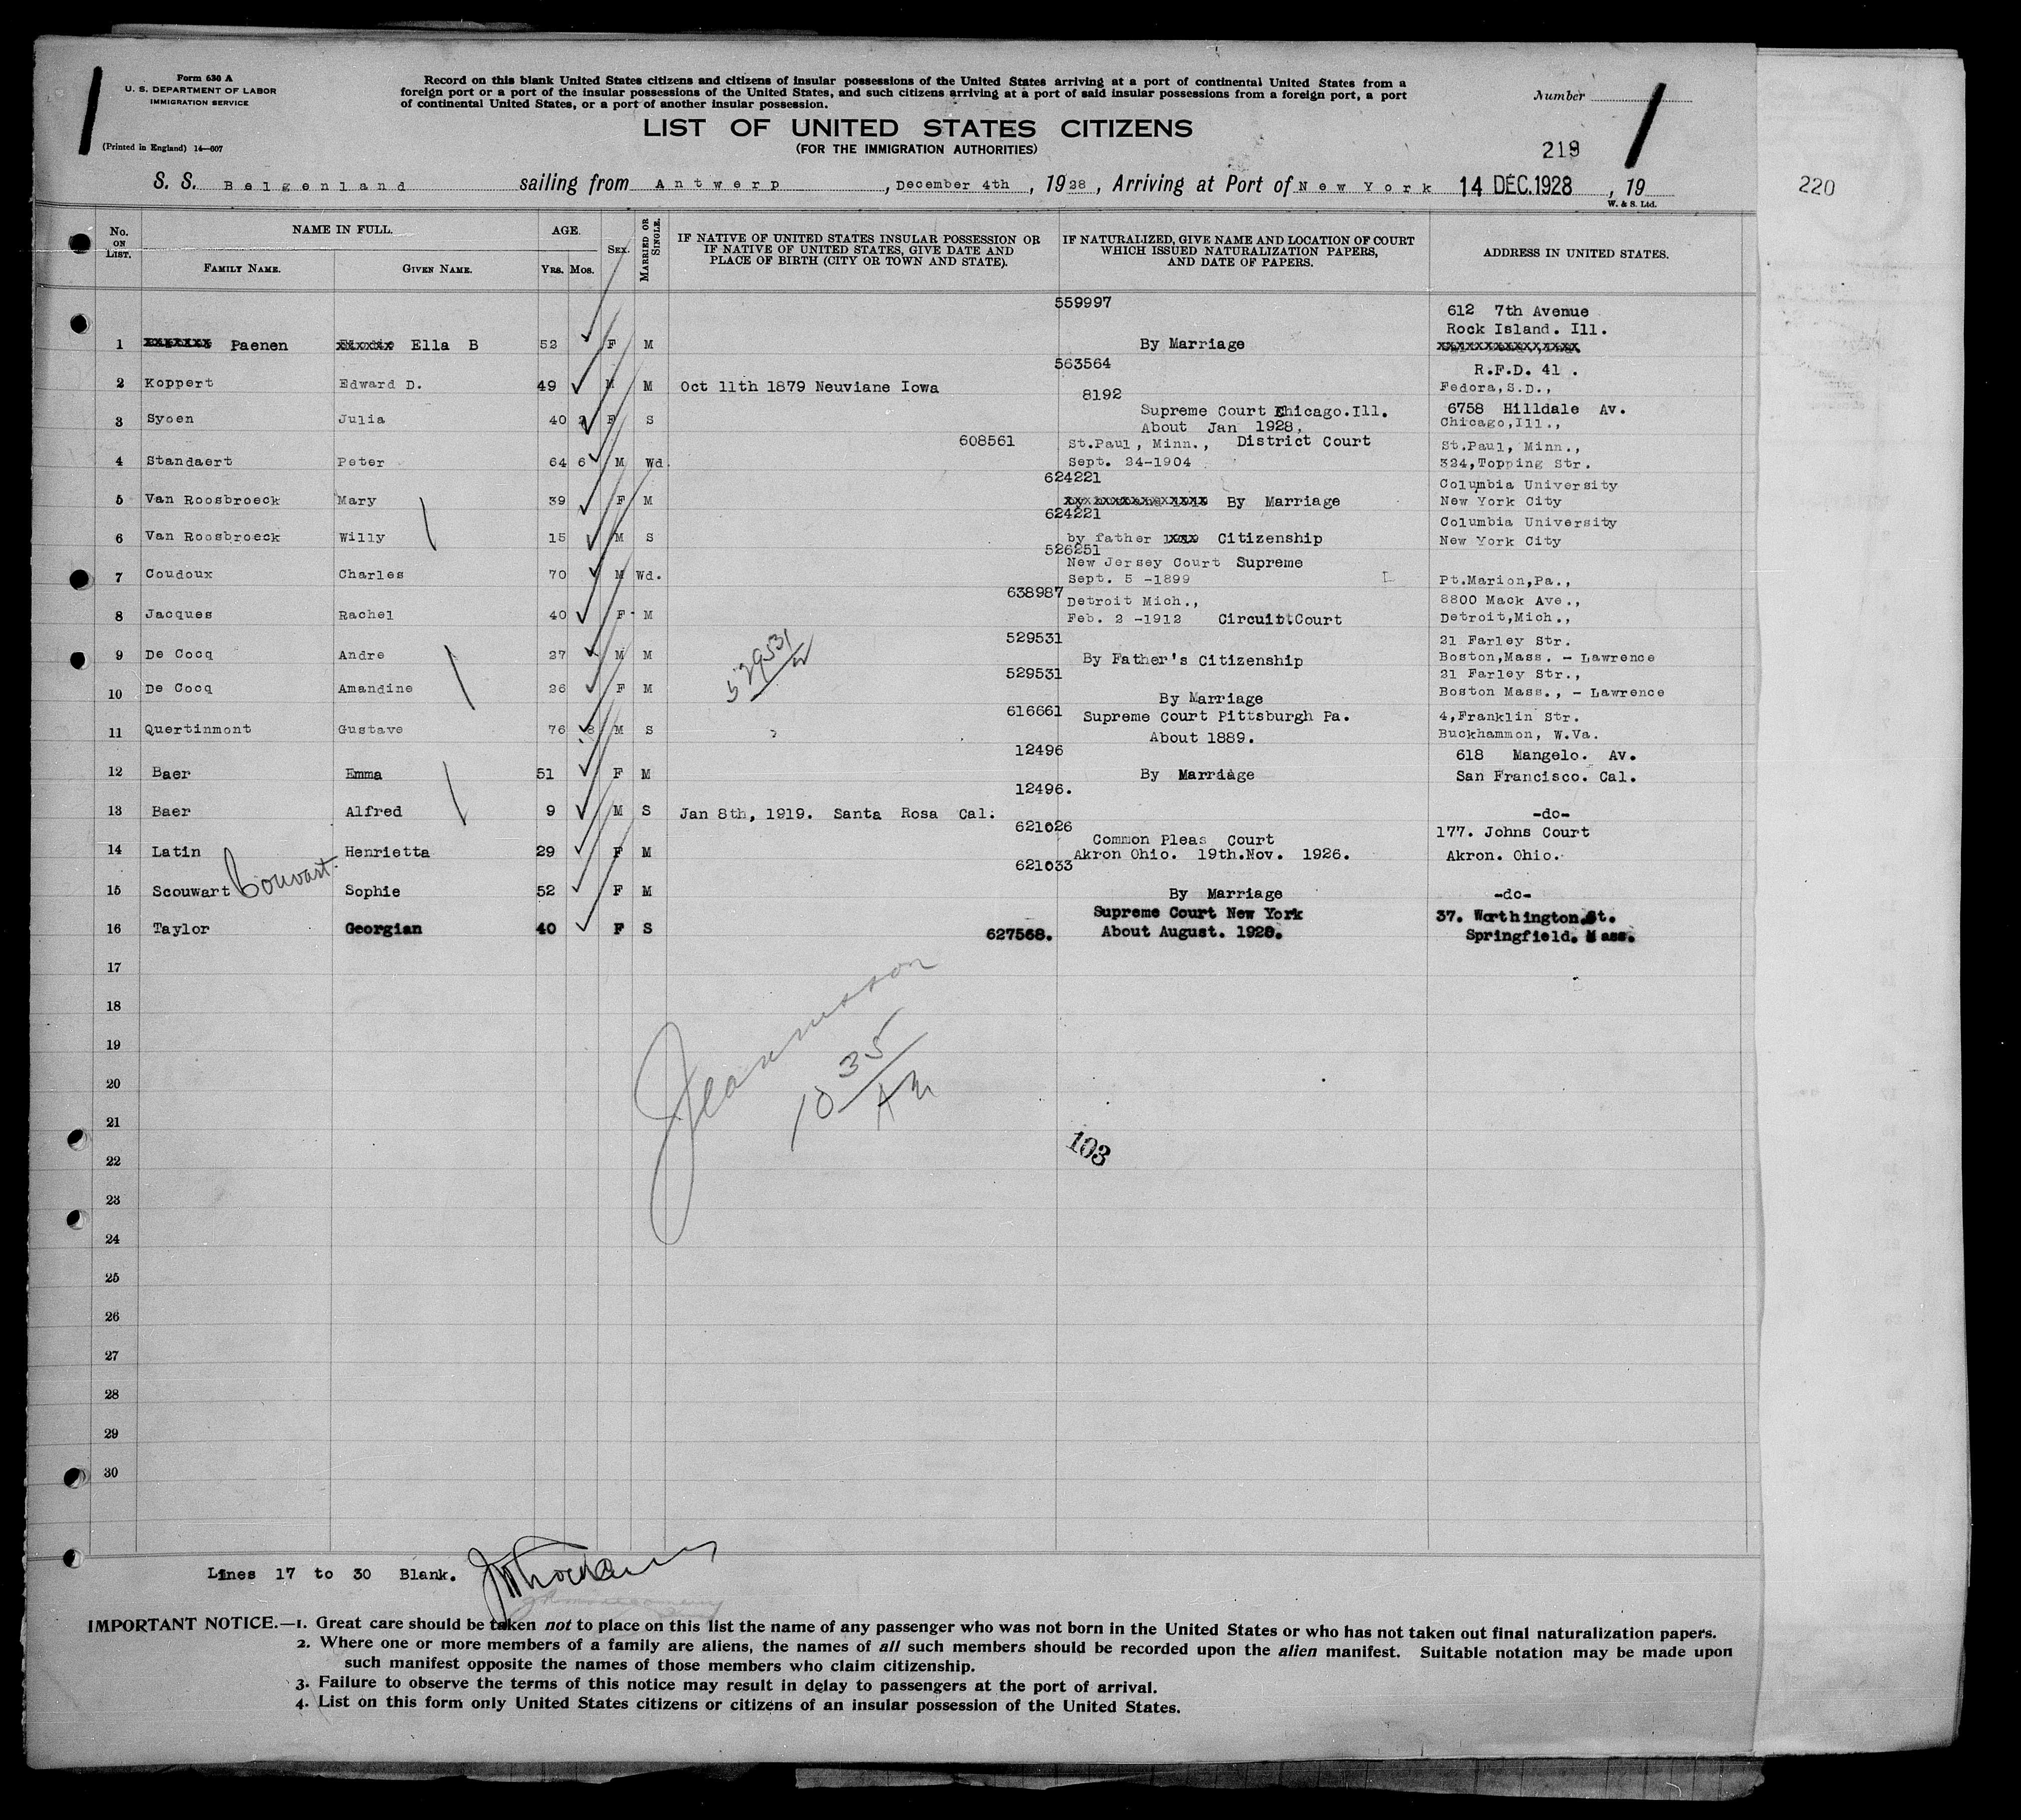 Form 630 A
U. S. DEPARTMENT OF LABOR
IMMIGRATION SERVICE
(Printed in England) 14—607
Record on this blank United States citizens and citizens of insular possessions of the United States arriving at a port of continental United States from a
foreign port or a port of the insular possessions of the United States, and such citizens arriving at a port of said insular possessions from a foreign port, a port
of continental United States, or a port of another insular possession.
Number
LIST OF UNITED STATES CITIZENS
(FOR THE IMMIGRATION AUTHORITIES)
219
220
S. S. Belgenland sailing from Antwerp, December 4th, 1928, Arriving at Port of New York 14 DEC.1928, 19
W. & S. Ltd.
No. ON LIST. NAME IN FULL. FAMILY NAME. GIVEN NAME. AGE. YRS. MOS. SEX. MARRIED OR SINGLE. IF NATIVE OF UNITED STATES INSULAR POSSESSION OR IF NATIVE OF UNITED STATES, GIVE DATE AND PLACE OF BIRTH (CITY OR TOWN AND STATE). IF NATURALIZED, GIVE NAME AND LOCATION OF COURT WHICH ISSUED NATURALIZATION PAPERS, AND DATE OF PAPERS. ADDRESS IN UNITED STATES.
559997 612 7th Avenue
Rock Island. Ill.
1 Paenen Ella B 52 F M By Marriage
563564 R.F.D. 41 .
2 Koppert Edward D. 49 M M Oct 11th 1879 Neuviane Iowa Fedora,S.D.,
8192
Supreme Court Chicago.Ill. 6758 Hilldale Av.
3 Syoen Julia 40 2 F S About Jan 1928. Chicago,Ill.,
608561 St.Paul, Minn., District Court St.Paul, Minn.,
4 Standaert Peter 64 6 M Wd. Sept. 24-1904 324,Topping Str.
624221 Columbia University
5 Van Roosbroeck Mary 39 F M By Marriage New York City
624221 Columbia University
6 Van Roosbroeck Willy 15 M S by father Citizenship New York City
526251
New Jersey Court Supreme
7 Coudoux Charles 70 M Wd. Sept. 5 -1899 Pt.Marion,Pa.,
638987 Detroit Mich., 8800 Mack Ave.,
8 Jacques Rachel 40 F M Feb. 2 -1912 Circuit.Court Detroit,Mich.,
529531
529531 21 Farley Str.
9 De Cocq Andre 27 M M By Father's Citizenship Boston,Mass. - Lawrence
529531 21 Farley Str.,
10 De Cocq Amandine 26 F M By Marriage Boston Mass., - Lawrence
616661 Supreme Court Pittsburgh Pa. 4,Franklin Str.
11 Quertinmont Gustave 76 8 M S About 1889. Buckhammon, W.Va.
12496 618 Mangelo. Av.
12 Baer Emma 51 F M By Marriage San Francisco. Cal.
12496.
13 Baer Alfred 9 M S Jan 8th, 1919. Santa Rosa Cal. -do-
621026 Common Pleas Court 177. Johns Court
14 Latin Henrietta 29 F M Akron Ohio. 19th.Nov. 1926. Akron. Ohio.
621033
15 Scouwart Couvart Sophie 52 F M By Marriage -do-
Supreme Court New York 37. Worthington.St.
16 Taylor Georgian 40 F S 627568. About August. 1928. Springfield. Mass.
17
18
19
20
21
22
23
24
25
26
27
28
29
30
10 35
AM
103
Lines 17 to 30 Blank.
IMPORTANT NOTICE.—1. Great care should be taken not to place on this list the name of any passenger who was not born in the United States or who has not taken out final naturalization papers.
2. Where one or more members of a family are aliens, the names of all such members should be recorded upon the alien manifest. Suitable notation may be made upon
such manifest opposite the names of those members who claim citizenship.
3. Failure to observe the terms of this notice may result in delay to passengers at the port of arrival.
4. List on this form only United States citizens or citizens of an insular possession of the United States.